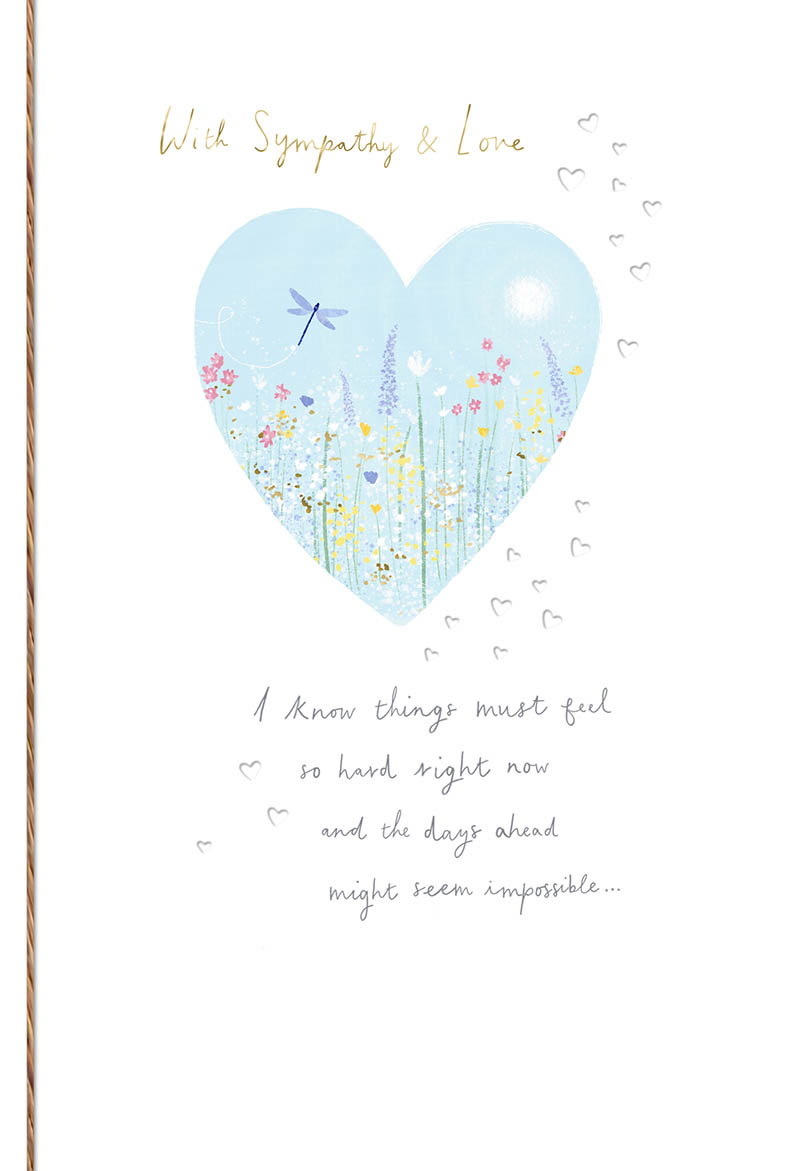 With Sympathy & Love
I know things must feel
so hard right now
and the days ahead
might seem impossible...